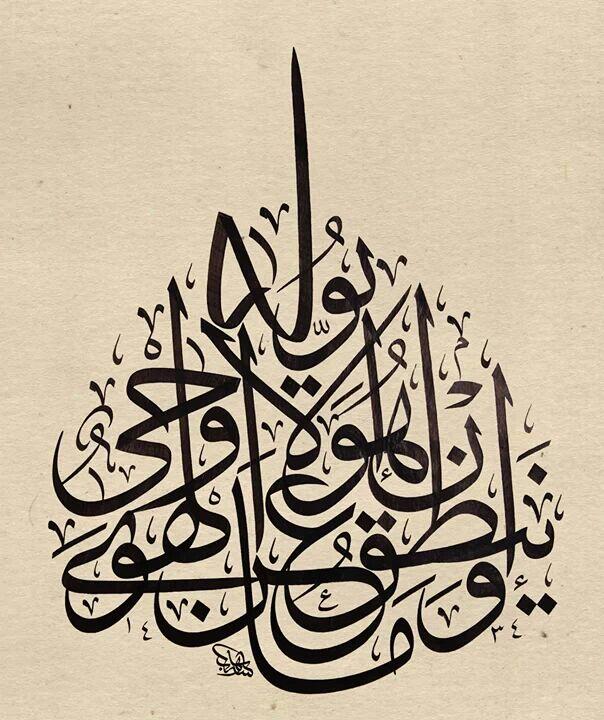 وما ينطق عن الهوى
إن هو إلا وحي
يوحى
١٤٣٤